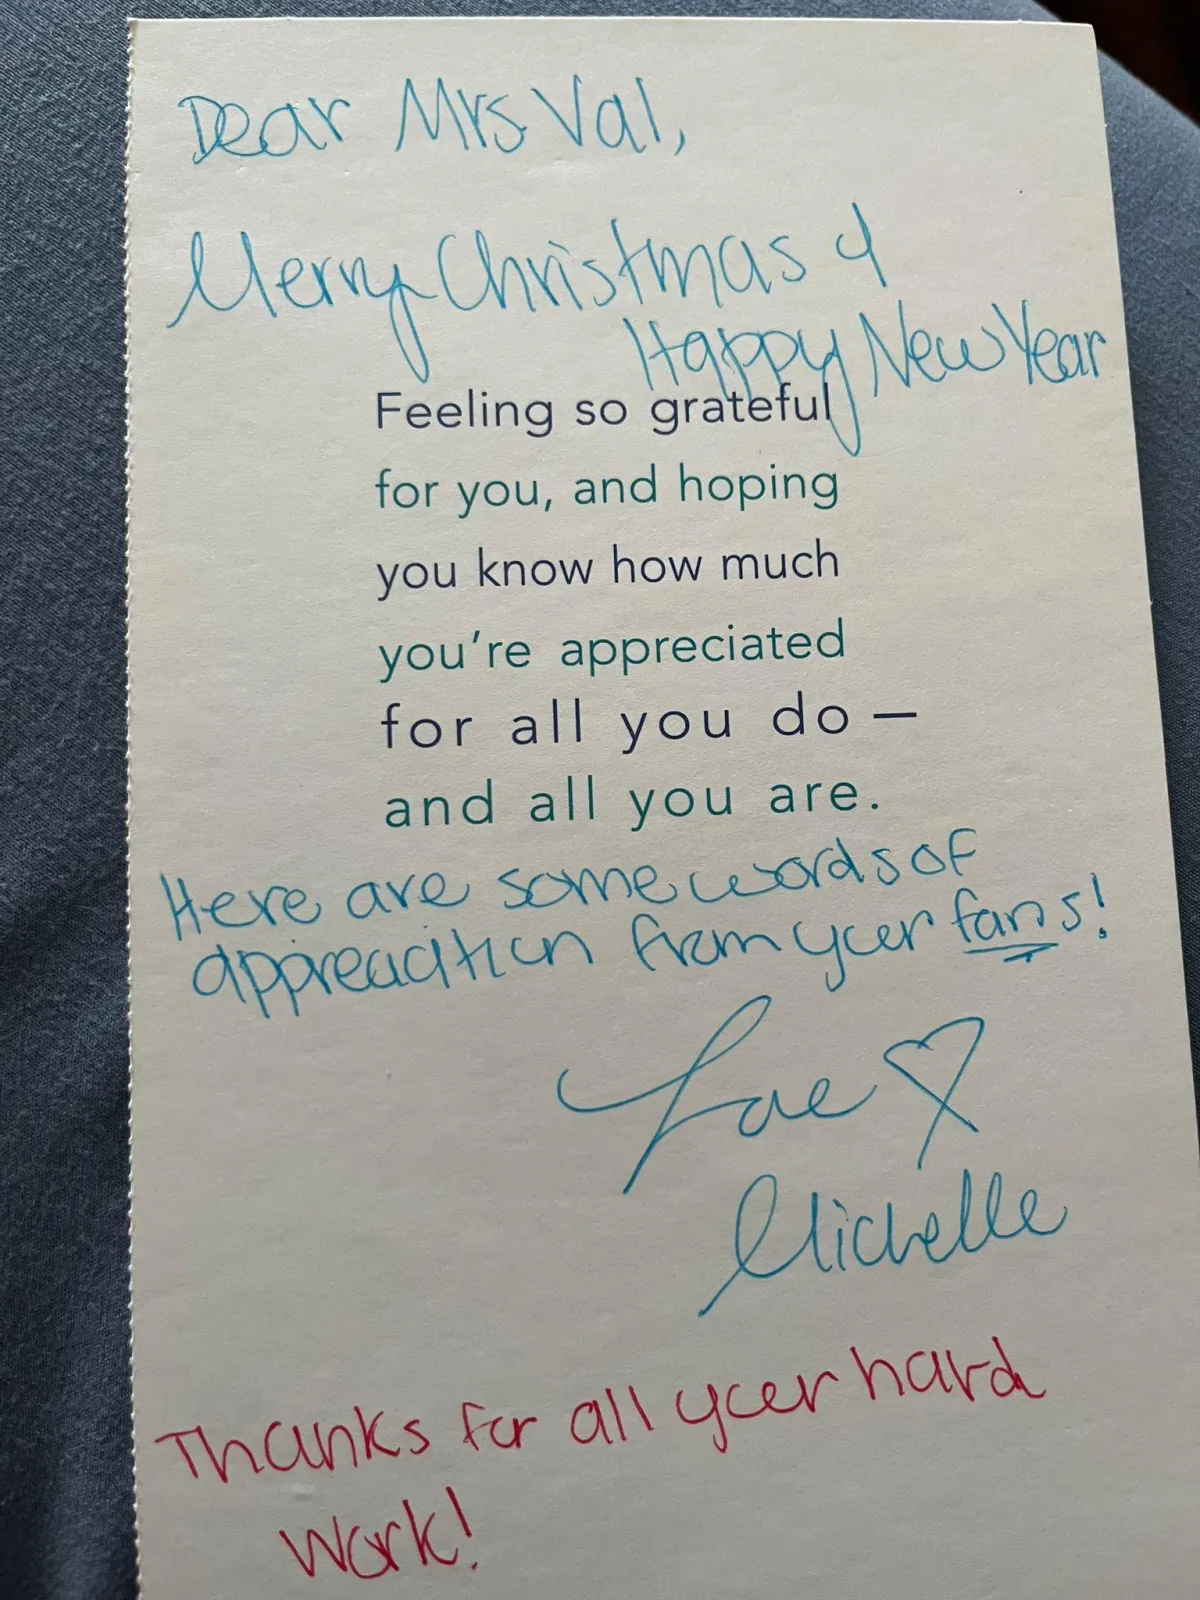 Dear Mrs Val,
Merry Christmas &
Happy New Year
Feeling so grateful
for you, and hoping
you know how much
you're appreciated
for all you do —
and all you are.
Here are some words of
appreciation from your fans!
Love ♡
Michelle
Thanks for all your hard
work!